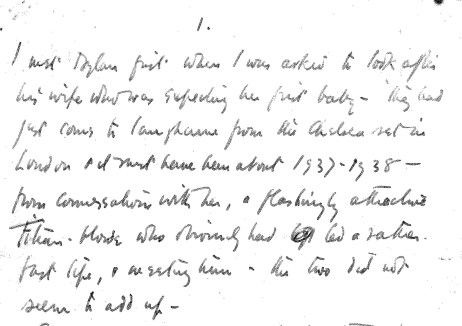 1.
I met Dylan first when I was asked to look after
his wife who was expecting her first baby - They had
just come to Laugharne from the Chelsea set in
London & it must have been about 1937-1938 -
from conversation with her, a flashingly attractive
Titian-blonde who obviously had led a rather
fast life, & meeting him - the two did not
seem to add up -